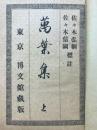 佐々木弘綱 標註
佐々木信綱
萬葉集 上
東京 博文館蔵版